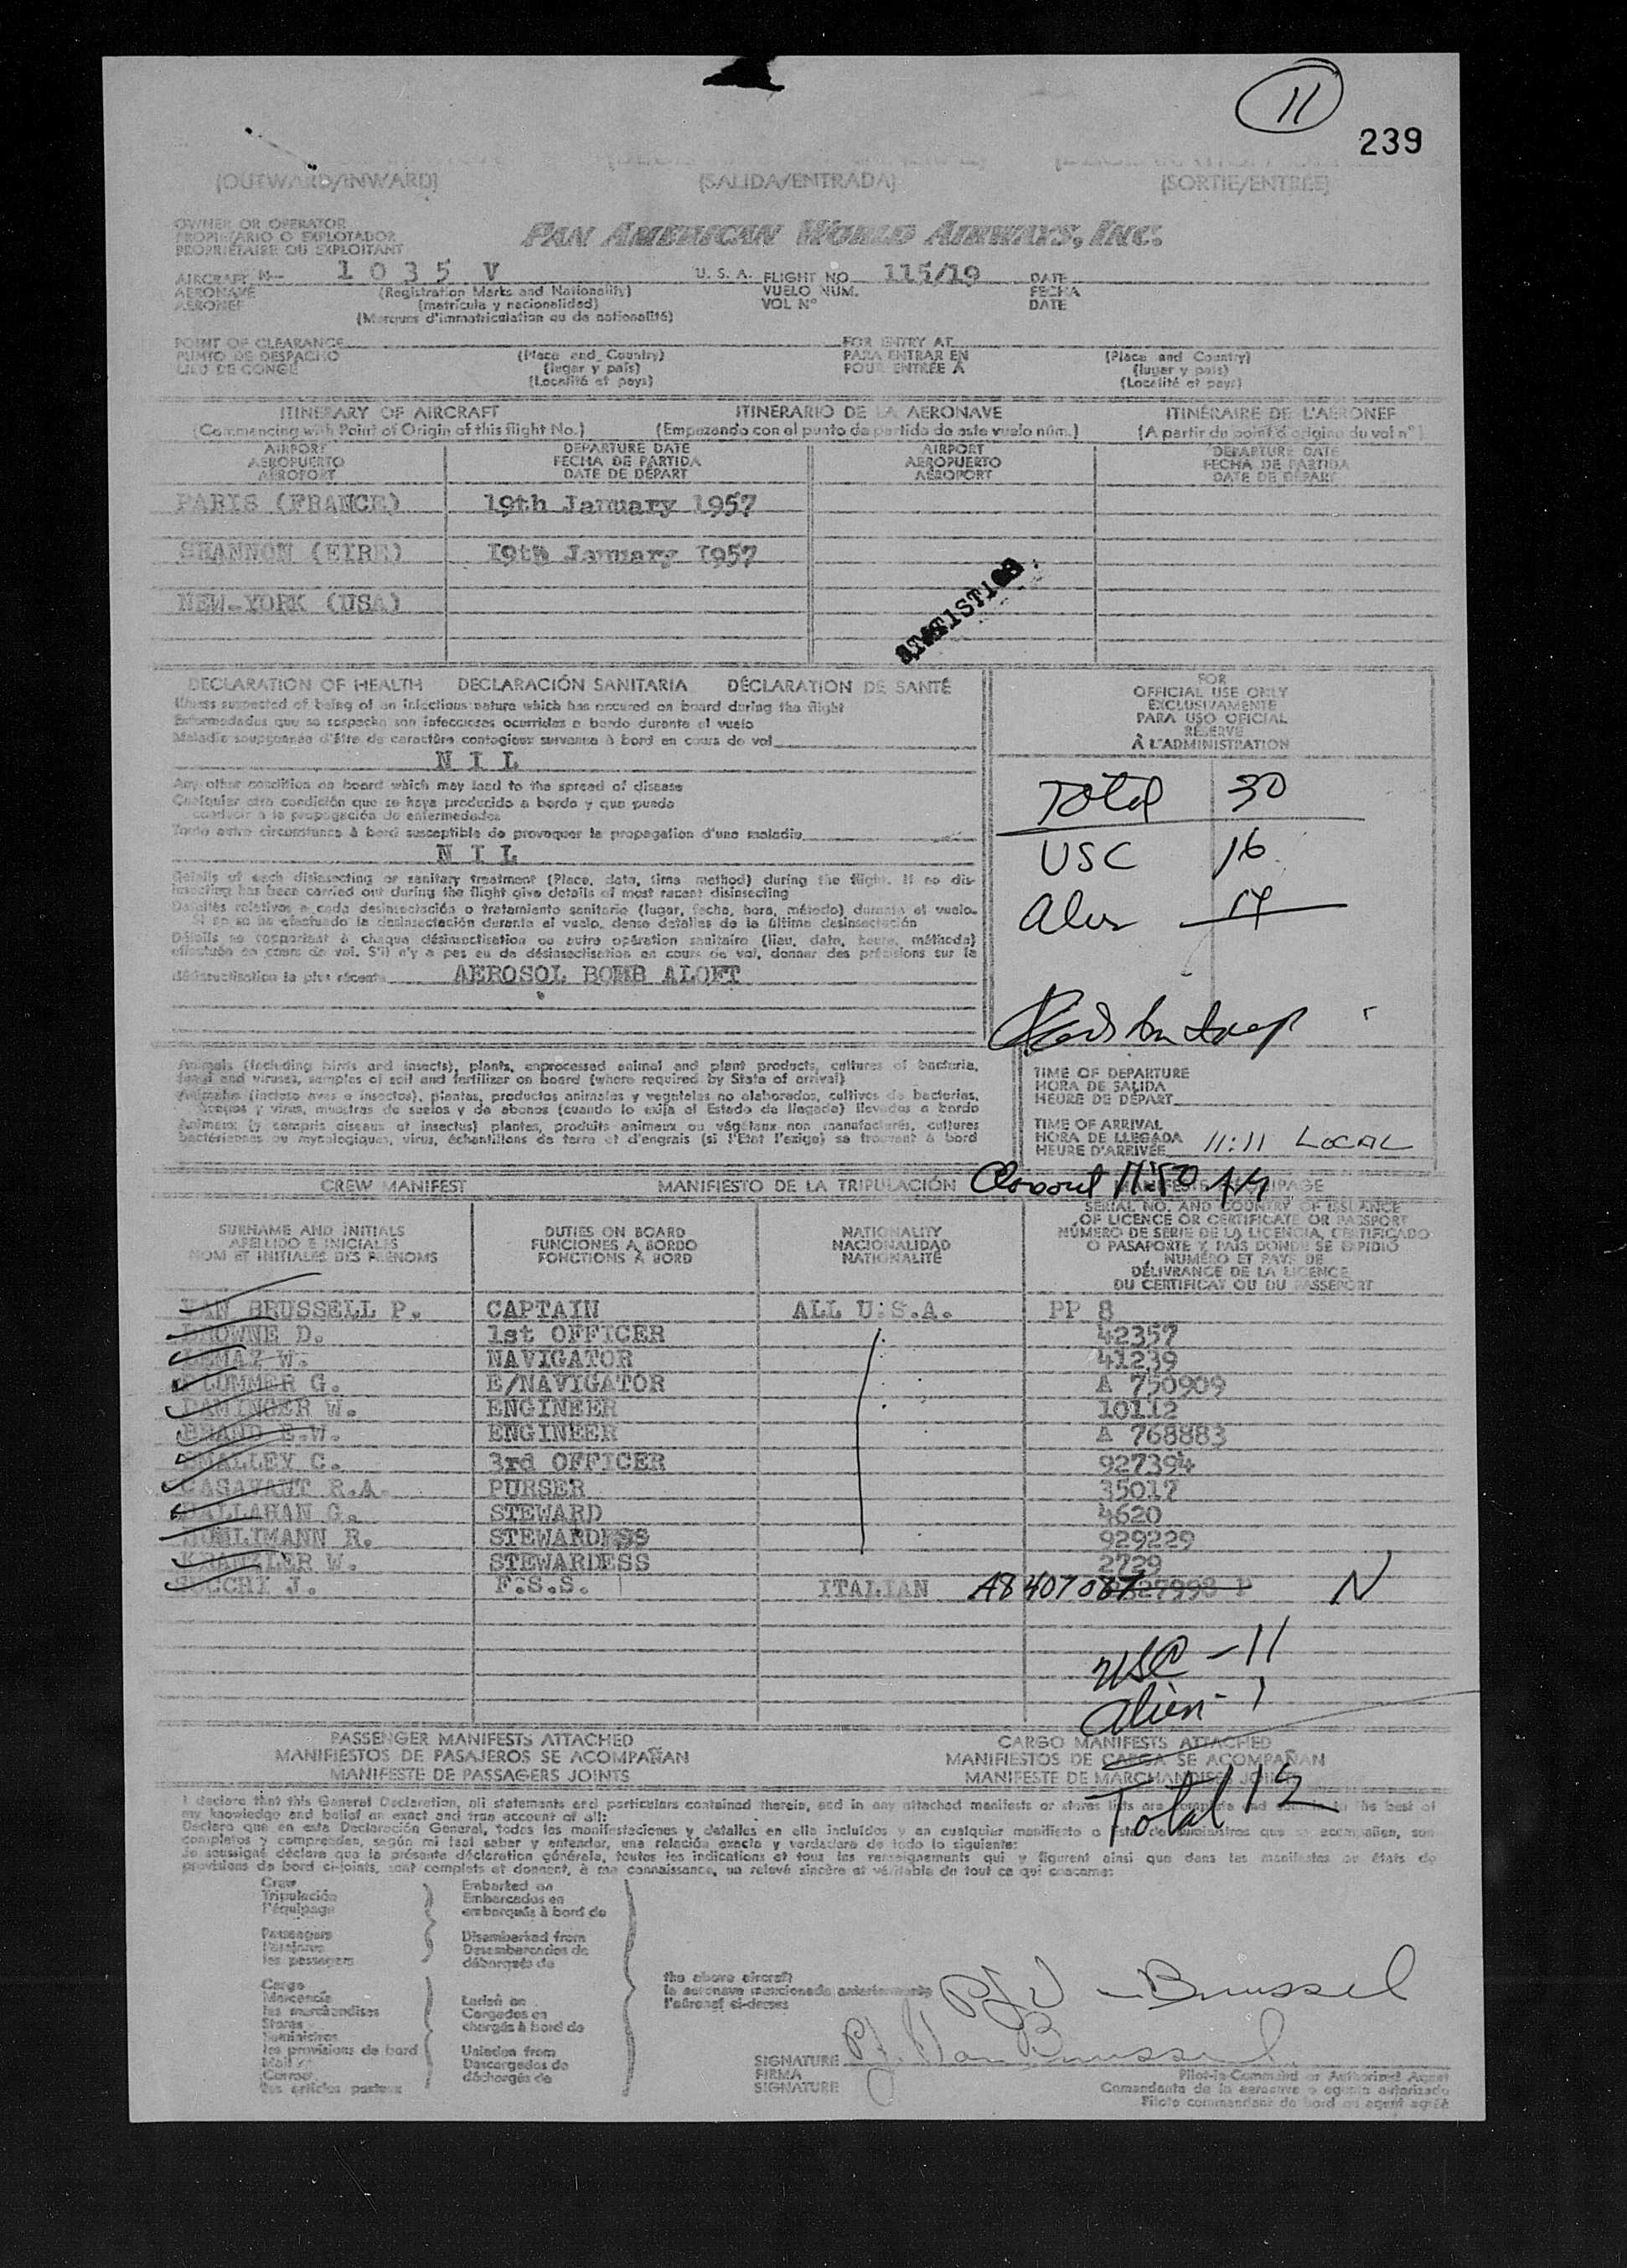 11
239
(OUTWARD/INWARD) (SALIDA/ENTRADA) (SORTIE/ENTRÉE)
OWNER OR OPERATOR
PROPIETARIO O EXPLOTADOR
PROPRIÉTAIRE OU EXPLOITANT
PAN AMERICAN WORLD AIRWAYS, INC.
AIRCRAFT N- 1 0 3 5 V U. S. A. FLIGHT NO. 115/19 DATE
AERONAVE (Registration Marks and Nationality) VUELO NÚM. FECHA
AÉRONEF (matrícula y nacionalidad) VOL N° DATE
(Marques d'immatriculation ou de nationalité)
POINT OF CLEARANCE FOR ENTRY AT
PUNTO DE DESPACHO (Place and Country) PARA ENTRAR EN (Place and Country)
LIEU DE CONGÉ (lugar y país) POUR ENTRÉE À (lugar y país)
(Localité et pays) (Localité et pays)
ITINERARY OF AIRCRAFT ITINERARIO DE LA AERONAVE ITINÉRAIRE DE L'AÉRONEF
(Commencing with Point of Origin of this flight No.) (Empezando con el punto de partida de este vuelo núm.) (A partir du point d'origine du vol n°)
AIRPORT DEPARTURE DATE AIRPORT DEPARTURE DATE
AEROPUERTO FECHA DE PARTIDA AEROPUERTO FECHA DE PARTIDA
AÉROPORT DATE DE DÉPART AÉROPORT DATE DE DÉPART
PARIS (FRANCE) 19th January 1957
SHANNON (EIRE) 19th January 1957
NEW-YORK (USA)
STATISTICS
DECLARATION OF HEALTH DECLARACIÓN SANITARIA DÉCLARATION DE SANTÉ
Illness suspected of being of an infectious nature which has occured on board during the flight
Enfermedades que se sospecha son infecciosas ocurridas a bordo durante el vuelo
Maladie soupçonnée d'être de caractère contagieux survenue à bord en cours de vol
N I L
Any other condition on board which may lead to the spread of disease
Cualquier otra condición que se haya producido a bordo y que pueda
conducir a la propagación de enfermedades
Toute autre circonstance à bord susceptible de provoquer la propagation d'une maladie
N I L
Details of each disinsecting or sanitary treatment (Place, date, time method) during the flight. If no dis-
insecting has been carried out during the flight give details of most recent disinsecting
Detalles relativos a cada desinsectación o tratamiento sanitario (lugar, fecha, hora, método) durante el vuelo.
Si no se ha efectuado la desinsectación durante el vuelo, dense detalles de la última desinsectación
Détails se rapportant à chaque désinsectisation ou autre opération sanitaire (lieu, date, heure, méthode)
effectuée en cours de vol. S'il n'y a pas eu de désinsectisation en cours de vol, donner des précisions sur la
désinsectisation la plus récente AEROSOL BOMB ALOFT
FOR
OFFICIAL USE ONLY
EXCLUSIVAMENTE
PARA USO OFICIAL
RÉSERVÉ
À L'ADMINISTRATION
Total 30
USC 16
Alien
Animals (including birds and insects), plants, unprocessed animal and plant products, cultures of bacteria,
fungi and viruses, samples of soil and fertilizer on board (where required by State of arrival)
Animales (incluso aves e insectos), plantas, productos animales y vegetales no elaborados, cultivos de bacterias,
hongos y virus, muestras de suelos y de abonos (cuando lo exija el Estado de llegada) llevados a bordo
Animaux (y compris oiseaux et insectes) plantes, produits animaux ou végétaux non manufacturés, cultures
bactériennes ou mycologiques, virus, échantillons de terre et d'engrais (si l'Etat l'exige) se trouvant à bord
TIME OF DEPARTURE
HORA DE SALIDA
HEURE DE DÉPART
TIME OF ARRIVAL
HORA DE LLEGADA 11:11 LOCAL
HEURE D'ARRIVÉE
CREW MANIFEST MANIFIESTO DE LA TRIPULACIÓN
SURNAME AND INITIALS DUTIES ON BOARD NATIONALITY SERIAL NO. AND COUNTRY OF ISSUANCE
APELLIDO E INICIALES FUNCIONES A BORDO NACIONALIDAD OF LICENCE OR CERTIFICATE OR PASSPORT
NOM ET INITIALES DES PRÉNOMS FONCTIONS À BORD NATIONALITÉ NÚMERO DE SERIE DE LA LICENCIA, CERTIFICADO
O PASAPORTE Y PAÍS DONDE SE EXPIDIÓ
NUMÉRO ET PAYS DE
DÉLIVRANCE DE LA LICENCE
DU CERTIFICAT OU DU PASSEPORT
VAN BRUSSELL P. CAPTAIN ALL U.S.A. PP 8
BROWNE D. 1st OFFICER 42357
LEMAY W. NAVIGATOR 41239
PLUMMER G. E/NAVIGATOR A 750909
DAMINGER W. ENGINEER 10112
BRAND E.W. ENGINEER A 768883
SMALLEY C. 3rd OFFICER 927394
CASAVANT R.A. PURSER 35017
G. STEWARD 4620
R. STEWARDESS 929229
KRANZLER W. STEWARDESS 2729
J. F.S.S. ITALIAN A8 407 087 N
USC - 11
Alien - 1
Total 12
PASSENGER MANIFESTS ATTACHED CARGO MANIFESTS ATTACHED
MANIFIESTOS DE PASAJEROS SE ACOMPAÑAN MANIFIESTOS DE CARGA SE ACOMPAÑAN
MANIFESTE DE PASSAGERS JOINTS MANIFESTE DE MARCHANDISES JOINTS
I declare that this General Declaration, all statements and particulars contained therein, and in any attached manifests or stores lists are complete and to the best of
my knowledge and belief an exact and true account of all:
Declaro que en esta Declaración General, todas las manifestaciones y detalles en ella incluídos y en cualquier manifiesto o lista de suministros que se acompañen, son
completos y comprenden, según mi leal saber y entender, una relación exacta y verdadera de todo lo siguiente:
Je soussigné déclare que la présente déclaration générale, toutes les indications et tous les renseignements qui y figurent ainsi que dans les manifestes ou états de
provisions de bord ci-joints, sont complets et donnent, à ma connaissance, un relevé sincère et véritable de tout ce qui concerne:
Crew Embarked on
Tripulación Embarcados en
l'équipage embarqués à bord de
Passengers Disembarked from
Pasajeros Desembarcados de
les passagers débarqués de
Cargo the above aircraft
Mercancía Laden on la aeronave mencionada anteriormente
les marchandises Cargados en l'aéronef ci-dessus
Stores chargés à bord de
Suministros
les provisions de bord Unladen from
Mail Descargados de
Correo déchargés de
les articles postaux
P.J. Van Brussel
SIGNATURE P.J. Van Brussel
FIRMA Pilot-in-Command or Authorized Agent
SIGNATURE Comandante de la aeronave o agente autorizado
Pilote commandant de bord ou agent agréé